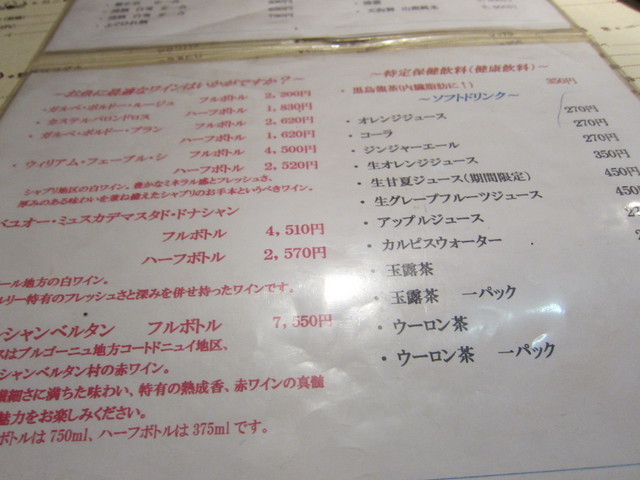 ～お魚に最適なワインはいかがですか？～
・ガルベ・ボルドー・ルージュ　フルボトル　2,200円
ハーフボトル　1,830円
・カステルバロンドロス　フルボトル　2,620円
・ガルベ・ボルドー・ブラン　ハーフボトル　1,620円
フルボトル　4,500円
・ウィリアム・フェーブル・シ　ハーフボトル　2,520円
シャブリ地区の白ワイン。豊かなミネラル感とフレッシュさ、
厚みのある味わいを兼ね備えたシャブリのお手本というべきワイン。
バユオー・ミュスカデマスタド・ドナシャン
フルボトル　4,510円
ハーフボトル　2,570円
ール地方の白ワイン。
ルリー特有のフレッシュさと深みを併せ持ったワインです。
シャンベルタン　フルボトル　7,550円
スはブルゴーニュ地方コートドニュイ地区、
シャンベルタン村の赤ワイン。
繊細さに満ちた味わい、特有の熟成香、赤ワインの真髄
魅力をお楽しみください。
ボトルは750ml、ハーフボトルは375mlです。
～特定保健飲料（健康飲料）～
黒烏龍茶（内臓脂肪に！）　350円
～ソフトドリンク～
・オレンジジュース　270円
・コーラ　270円
・ジンジャーエール　270円
・生オレンジジュース　350円
・生甘夏ジュース（期間限定）　450円
・生グレープフルーツジュース　450
・アップルジュース
・カルピスウォーター
・玉露茶
・玉露茶　一パック
・ウーロン茶
・ウーロン茶　一パック